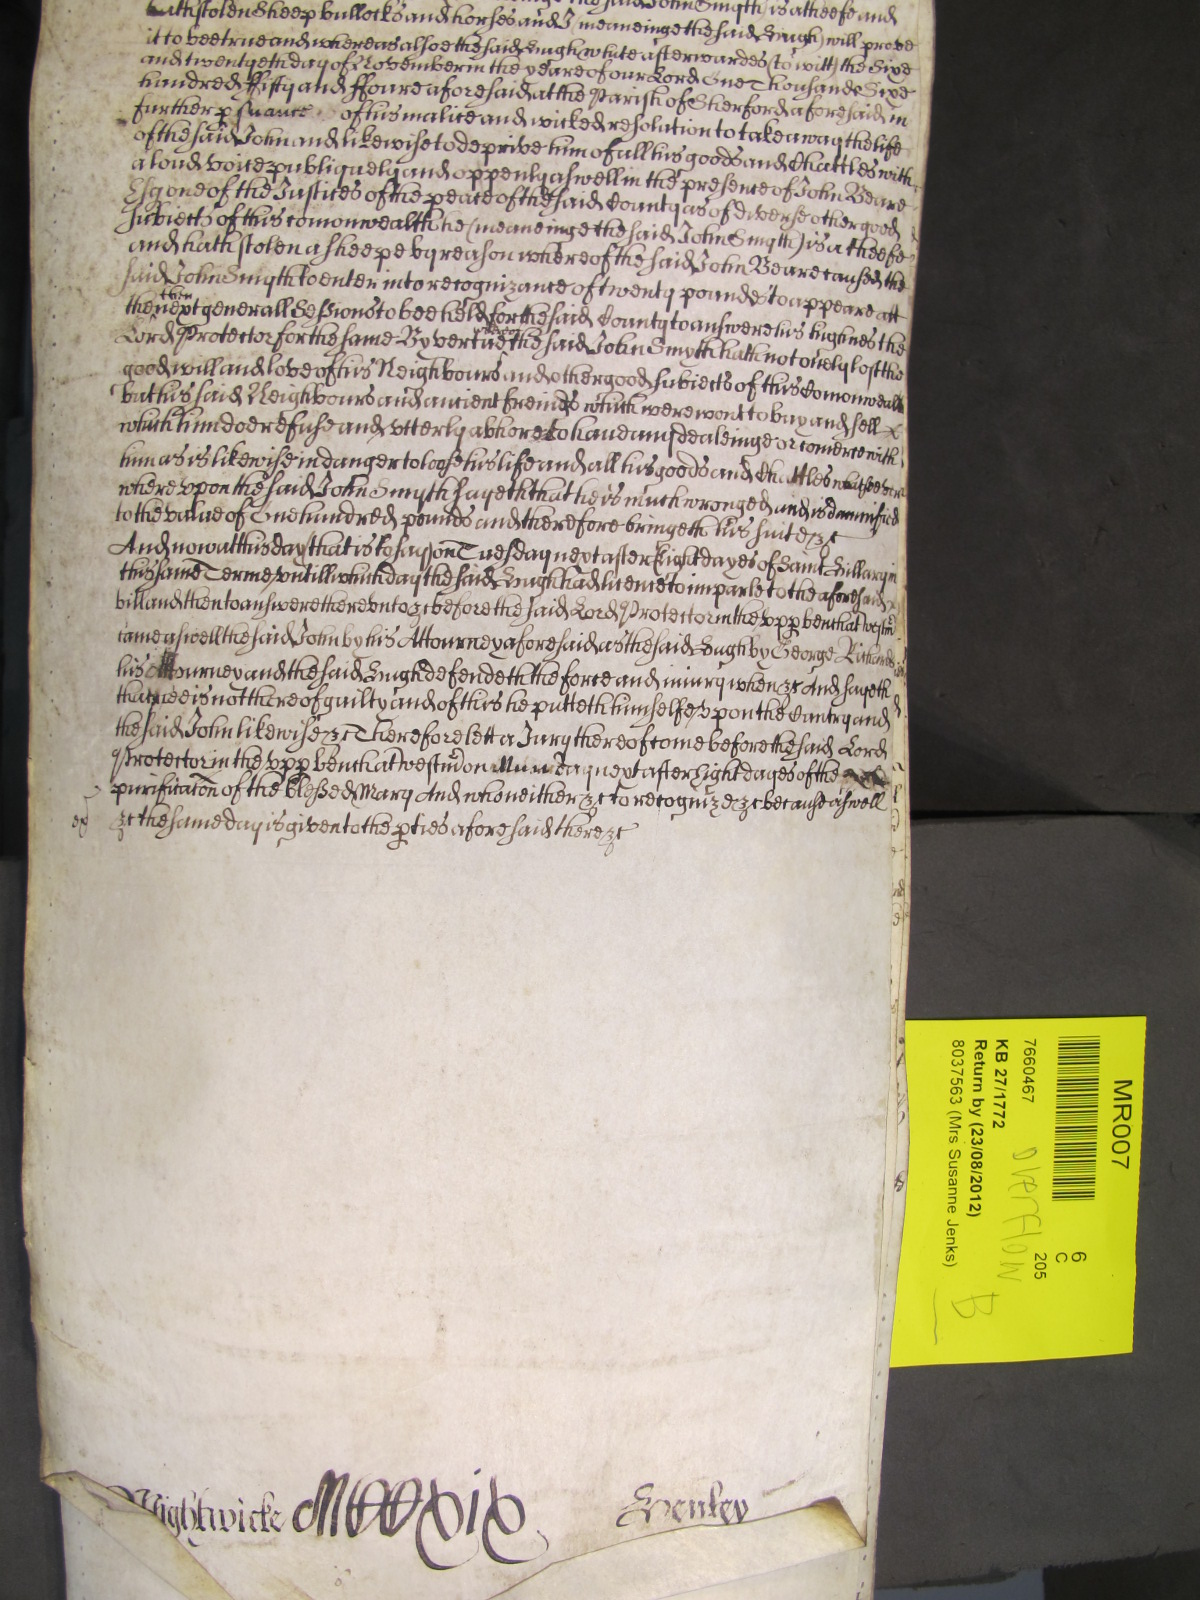 hath stolen Sheep bullocks and horses and I (meaneinge the said Hugh) will prove
it to bee true and whereas alsoe the said Hugh white afterwardes (to witt) the Sixe
and twentyeth day of November in the yeare of our Lord One Thousande Sixe
hundred ffifty and ffoure aforesaid att the Parish of Sherford aforesaid in
further psuance of his malice and wicked resolution to take away the life
of the said John and likewise to deprive him of all his goods and Chattles with
a loud voice publiquely and oppenly aswell in the presence of John Beare
Esq one of the Justices of the peace of the said County as of diverse other good
subiects of this comonwealth he (meaneinge the said John Smyth) is a theefe
and hath stolen a sheepe by reason whereof the said John Beare caused the
said John Smyth to enter into recognizance of twenty poundes to appeare att
the then next generall Sessions to bee held for the said County to answere his highnes the
Lord Protector for the same By vertue whereof the said John Smyth hath not onely lost the
good will and love of his Neighbours and other good subiects of this Comonwealth
but his said Neighbours and ancient freinds which were wont to buy and sell
with him doe refuse and utterly abhore to have any dealeinge or comerce with
him as is likewise in danger to loose his life and all his goods and Chattles whatsoever
whereupon the said John Smyth sayeth that he is much wronged and is damnified
to the value of One hundred pounds and therefore bringeth his suite &c
And now att this day that is to say on Tuesday next after Eight dayes of Saint Hillary in
this same Terme untill which day the said Hugh had licence to imparle to the aforesaid
bill and then to answere thereunto &c before the said Lord Protector in the upp bench at Westm
came aswell the said John by his Attourney aforesaid as the said Hugh by George Richards
his Attourney and the said Hugh defendeth the force and iniury when &c And sayeth
that hee is not thereof guilty and of this he putteth himselfe upon the Cuntry and
the said John likewise &c Therefore lett a Jury thereof come before the said Lord
Protector in the upp bench at Westm on Munday next after Eight dayes of the
purificacon of the blessed Mary And who neither &c to recognize &c because aswell
&c the same day is given to the pties aforesaid there &c
Wightwicke MCCXIX Henley
MR007
7660467
6
C
205
KB 27/1772
Overflow
Return by (23/08/2012)
B
8037563 (Mrs Susanne Jenks)